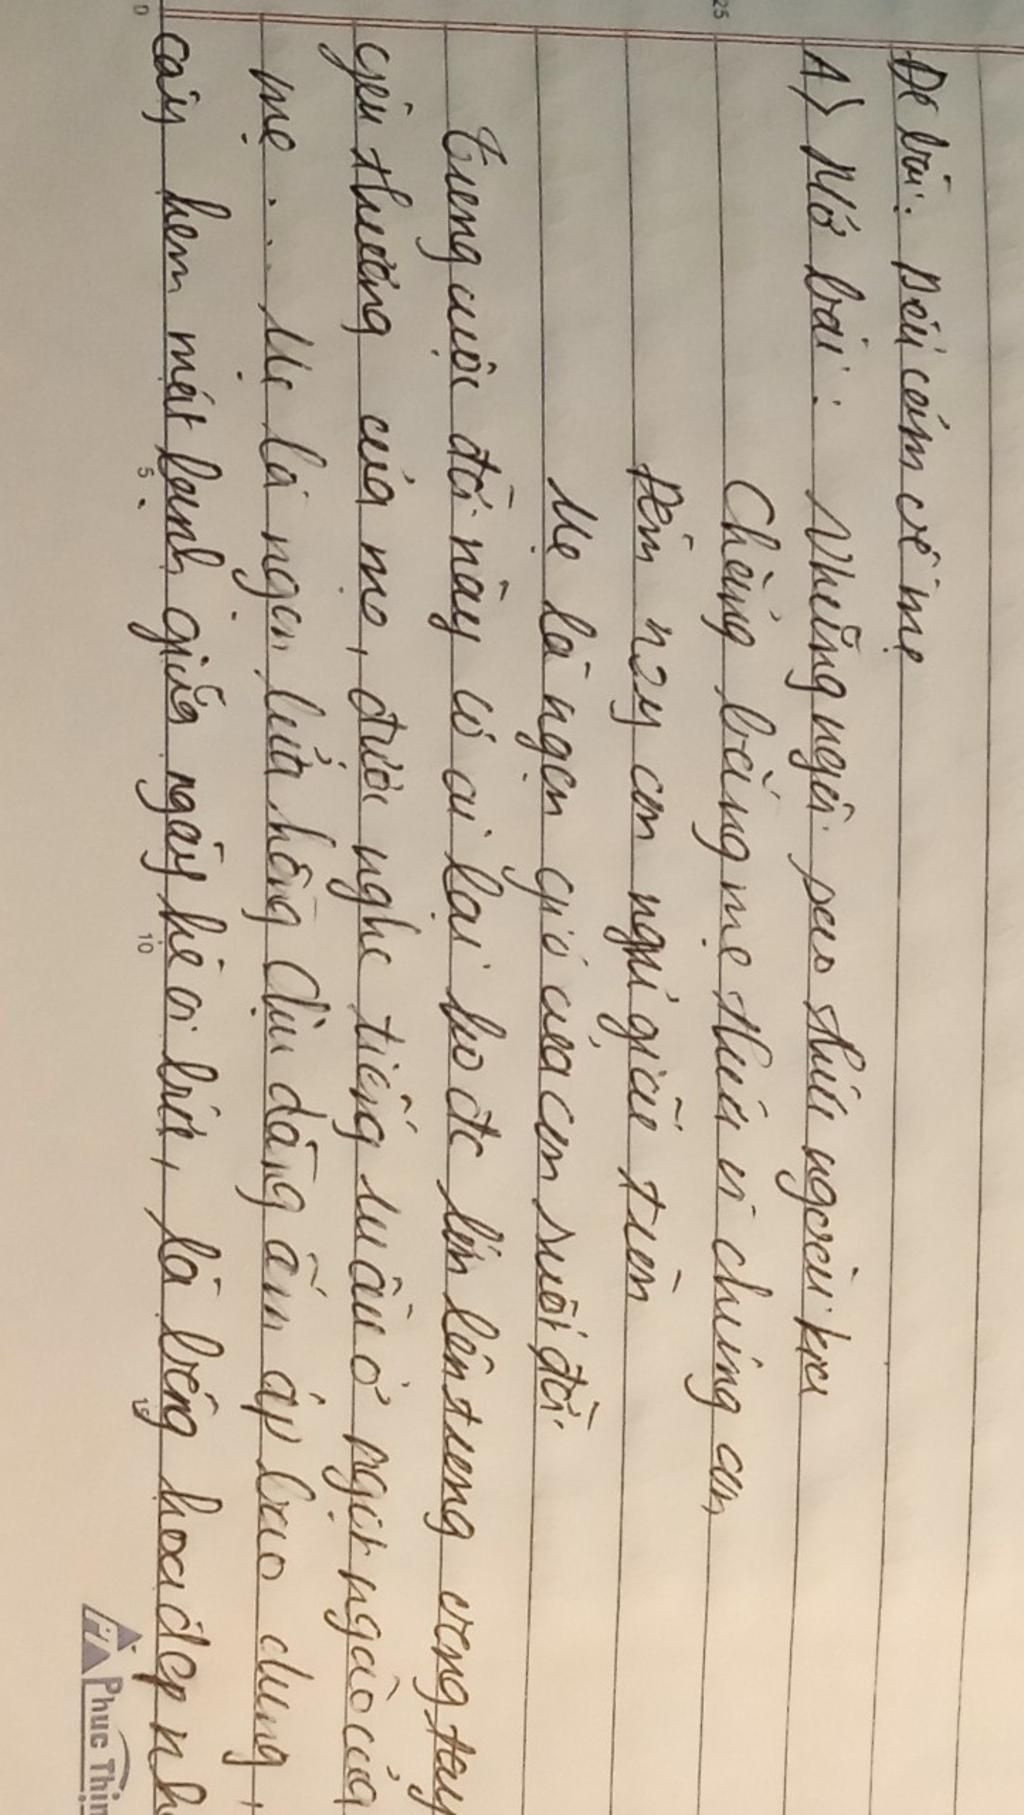 Đề bài: Biểu cảm về mẹ
A) Mở bài: Những ngôi sao thức ngoài kia
Chẳng bằng mẹ thức vì chúng con
Đêm nay con ngủ giấc tròn
Mẹ là ngọn gió của con suốt đời
Trong cuộc đời này có ai lại ko đc lớn lên trong vòng tay
yêu thương của mẹ, được nghe tiếng ru ầu ơ ngọt ngào của
mẹ... Mẹ là ngọn lửa hồng dịu dàng ấm áp bao dung,
cây kem mát lạnh giữa ngày hè oi bức, là bông hoa đẹp nh
Phuc Thin
25
0
5
10
15